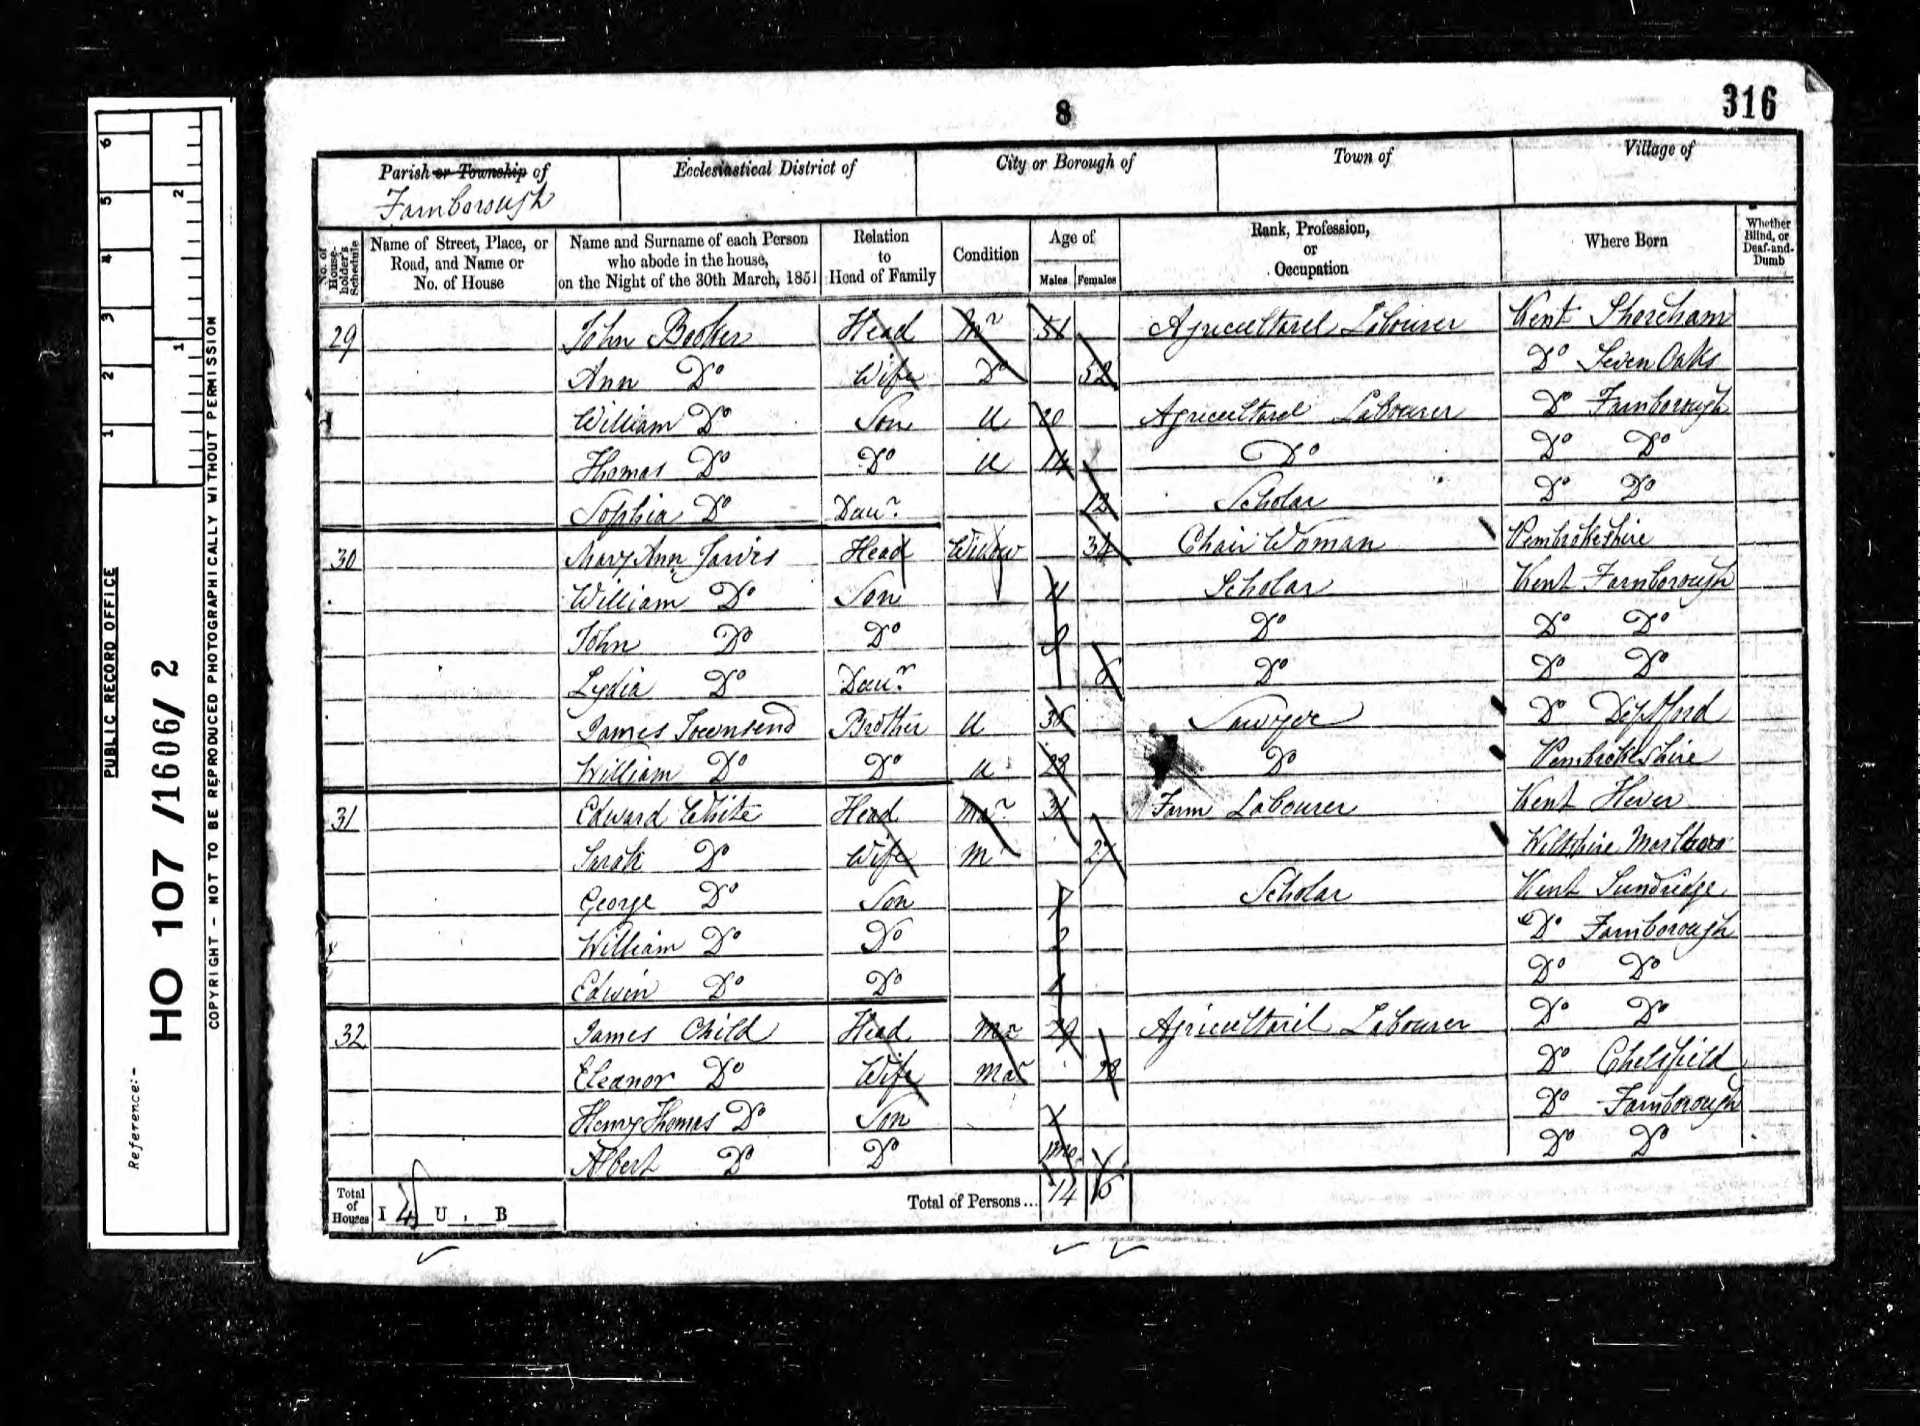 316
8
Parish or Township of
Farnborough
Ecclesiastical District of
City or Borough of
Town of
Village of
No. of House-holder's Schedule
Name of Street, Place, or Road, and Name or No. of House
Name and Surname of each Person who abode in the house, on the Night of the 30th March, 1851
Relation to Head of Family
Condition
Age of
Males Females
Rank, Profession, or Occupation
Where Born
Whether Blind, or Deaf-and-Dumb
29 John Booker Head Mr 51 Agricultural Labourer Kent Shoreham
Ann Do Wife Do 52 Do Seven Oaks
William Do Son U 20 Agricultural Labourer Do Farnborough
Thomas Do Do U 14 Do Do Do
Sophia Do Daur. 12 Scholar Do Do
30 Mary Ann Jarvis Head Widow 34 Chair Woman Pembrokeshire
William Do Son 11 Scholar Kent Farnborough
John Do Do Do Do Do
Lydia Do Daur. 6 Do Do Do
James Townsend Brother U 36 Sawyer Do Deptford
William Do Do U 28 Do Pembrokeshire
31 Edward White Head Mar. 31 Farm Labourer Kent Hever
Sarah Do Wife M 27 Wiltshire Marlboro
George Do Son 7 Scholar Kent Sundridge
William Do Do 2 Do Farnborough
Edwin Do Do 1 Do Do
32 James Child Head Mar 29 Agricultural Labourer Do Do
Eleanor Do Wife Mar 28 Do Chelsfield
Henry Thomas Do Son Do Farnborough
Albert Do Do Do Do
Total of Houses I 4 U B
Total of Persons... 14 6
6
5
4
3
2
1
2
1
PUBLIC RECORD OFFICE
Reference:-
HO 107 /1606/ 2
COPYRIGHT - NOT TO BE REPRODUCED PHOTOGRAPHICALLY WITHOUT PERMISSION